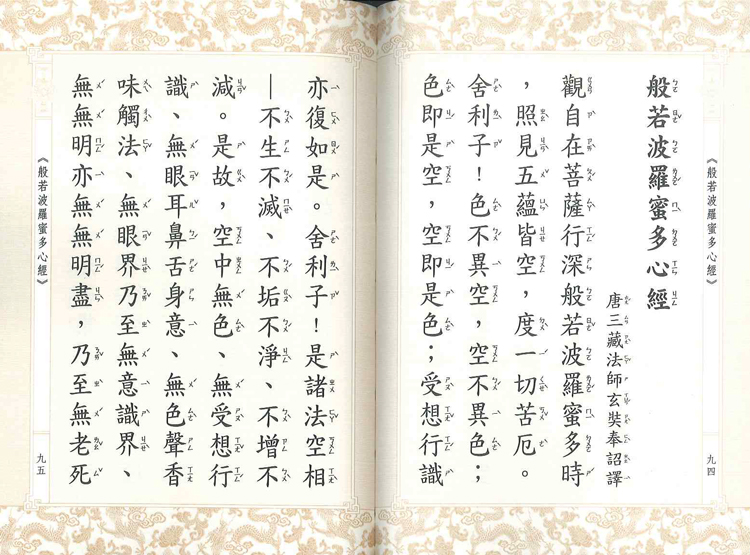 《般若波羅蜜多心經》
九四
般若波羅蜜多心經
唐三藏法師玄奘奉詔譯
觀自在菩薩行深般若波羅蜜多時
，照見五蘊皆空，度一切苦厄。
舍利子！色不異空，空不異色；
色即是空，空即是色；受想行識
亦復如是。舍利子！是諸法空相
—不生不滅、不垢不淨、不增不
減。是故，空中無色、無受想行
識、無眼耳鼻舌身意、無色聲香
味觸法、無眼界乃至無意識界、
無無明亦無無明盡，乃至無老死
《般若波羅蜜多心經》
九五